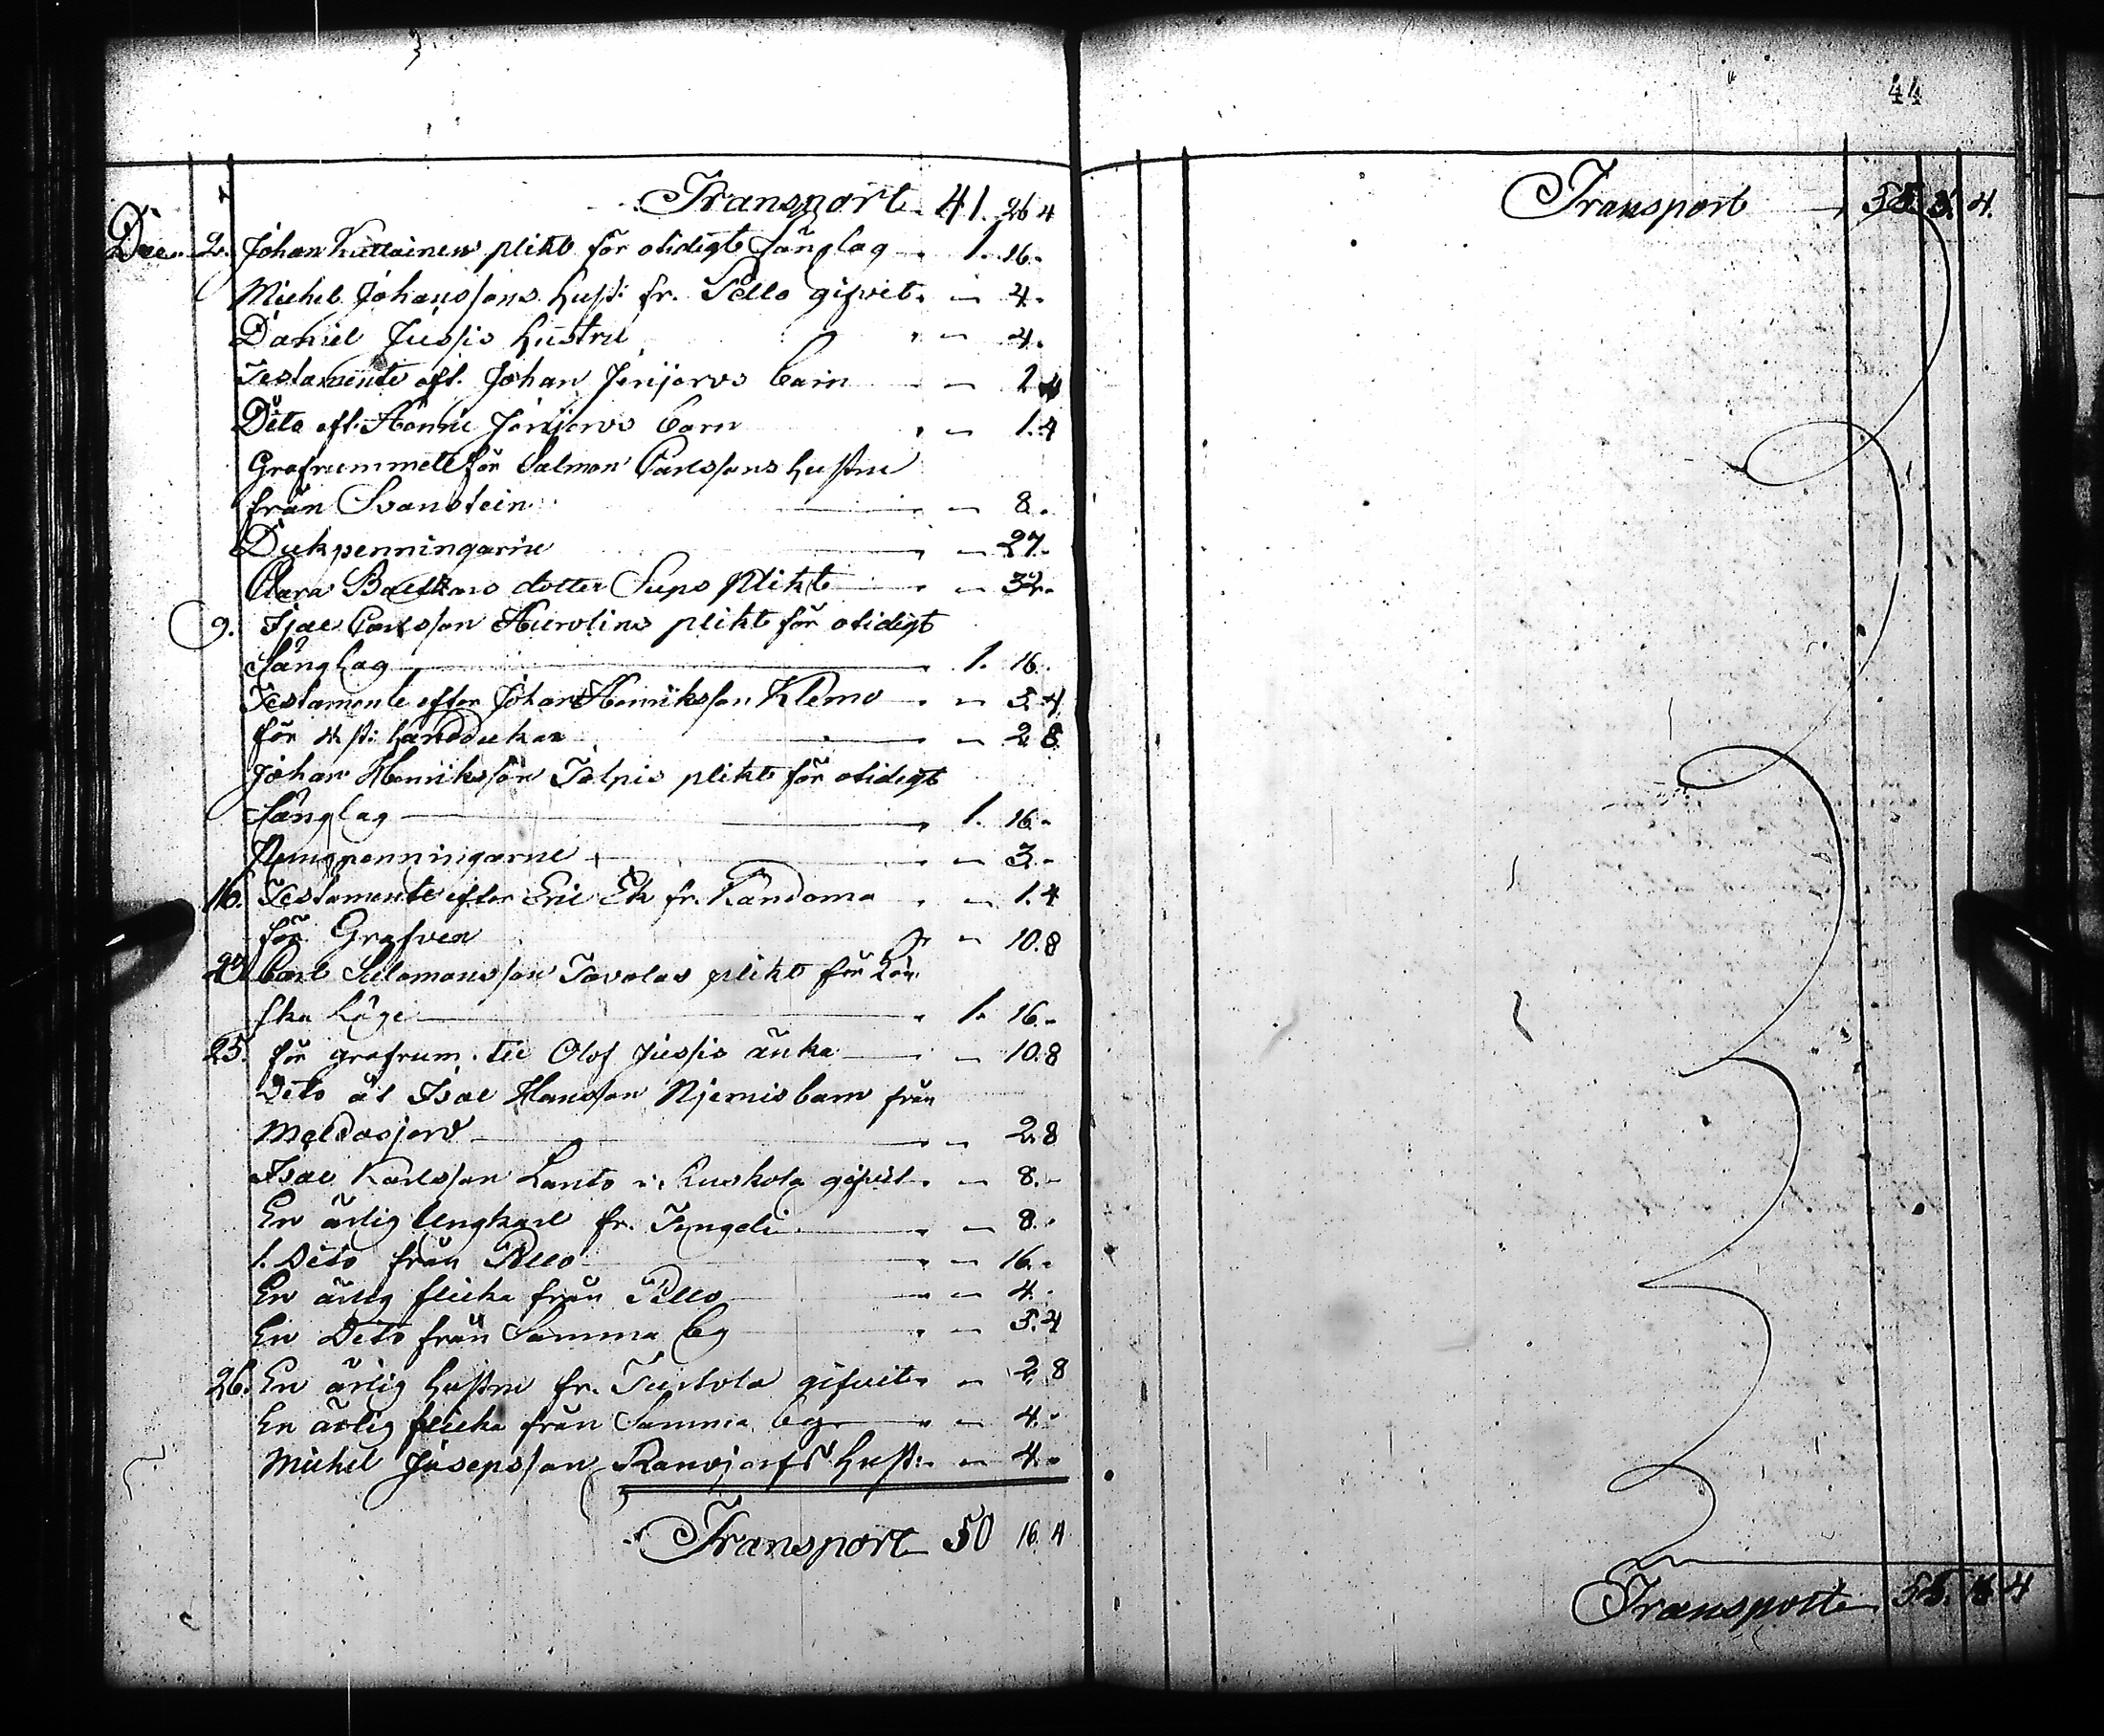 44
Transport 41. 26 4
Dec. 2. Johan Kuttainen plikt för otidigt Sänglag 1. 16.
Michel Johanssons hust: fr. Pello gifvit. " 4.
Daniel Jussis hustru " 4.
Testamente eft. Johan Jerijervs barn " 2
Dito eft. Jerijervs barn " 1.4
Grafrummet för Salmon Carlssons hustru
från Svanstein " 8.
Duk penningarne " 27.
Clara dotter plikt " 32.
9. Isac Carlsson plikt för otidigt
Sänglag 1. 16.
Testamente efter Johan Henriksson Klemo " 5.4
för st: handdukar " 2 8
Johan Henriksson plikt för otidigt
Sänglag 1. 16.
penningarne " 3.
16. Testamente efter Eric Ek fr. " 1.4
för Grafven " 10.8
Carl Salomonsson plikt för Lön
ska Läge 1. 16.
25. för grafrum till Olof Jussis änka " 10.8
Dito åt Isac Hansson barn från
" 2.8
Isac Karlsson Lanto i Ruskola gifvit " 8.
En ärlig Ungkarl fr. Tengeli " 8.
1. Dito från Pello " 16.
En ärlig flicka från Pello " 4.
En Dito från Samma by " 5.4
26. En ärlig hustru fr. Turtola gifvit " 2 8
En ärlig flicka från Samma by " 4.
Michel Josepsson hust: " 4.
Transport 50 16. 4
Transport 4.
Transport 4